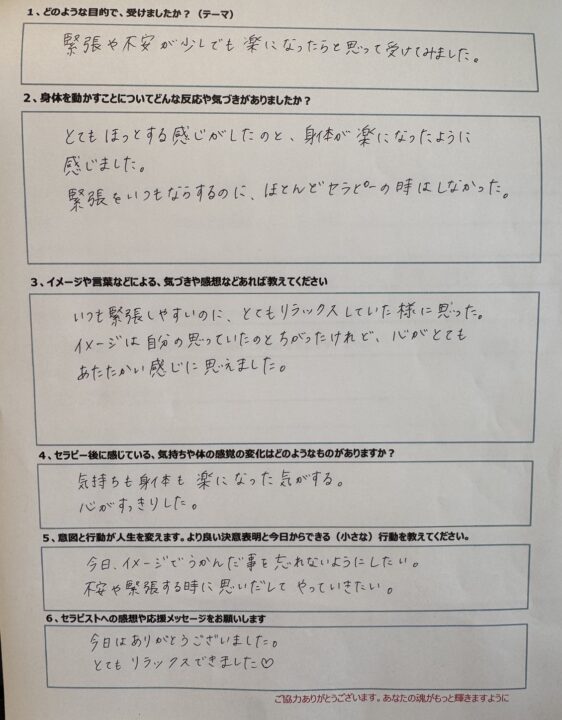 1、どのような目的で、受けましたか？（テーマ）
緊張や不安が少しでも楽になったらと思って受けてみました。
2、身体を動かすことについてどんな反応や気づきがありましたか？
とてもほっとする感じがしたのと、身体が楽になったように
感じました。
緊張をいつもならするのに、ほとんどセラピーの時はしなかった。
3、イメージや言葉などによる、気づきや感想などあれば教えてください
いつも緊張しやすいのに、とてもリラックスしていた様に思った。
イメージは自分の思っていたのとちがったけれど、心がとても
あたたかい感じに思えました。
4、セラピー後に感じている、気持ちや体の感覚の変化はどのようなものがありますか？
気持ちも身体も楽になった気がする。
心がすっきりした。
5、意図と行動が人生を変えます。より良い決意表明と今日からできる（小さな）行動を教えてください。
今日、イメージでうかんだ事を忘れないようにしたい。
不安や緊張する時に思いだしてやっていきたい。
6、セラピストへの感想や応援メッセージをお願いします
今日はありがとうございました。
とてもリラックスできました♡
ご協力ありがとうございます。あなたの魂がもっと輝きますように